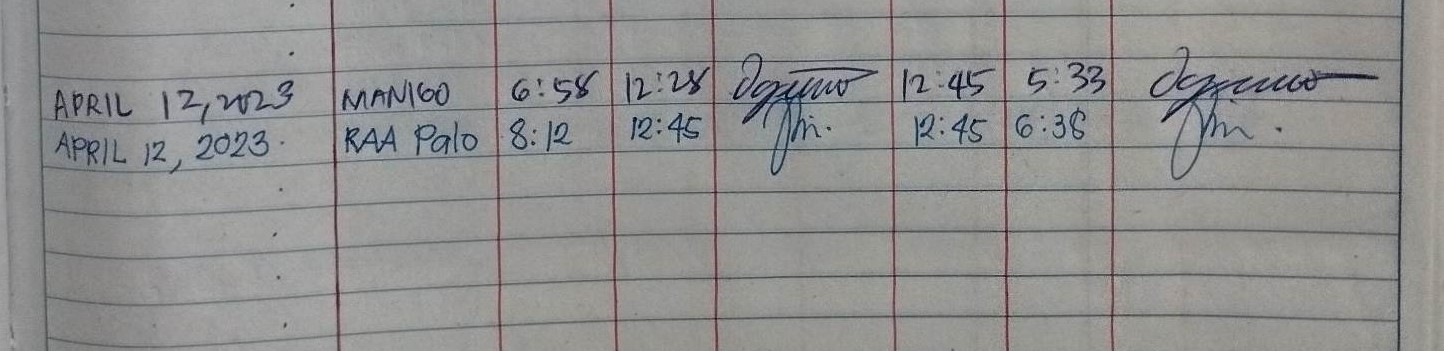 APRIL 12, 2023 MANIGO 6:58 12:28 12:45 5:33
APRIL 12, 2023. RAA Palo 8:12 12:45 12:45 6:38